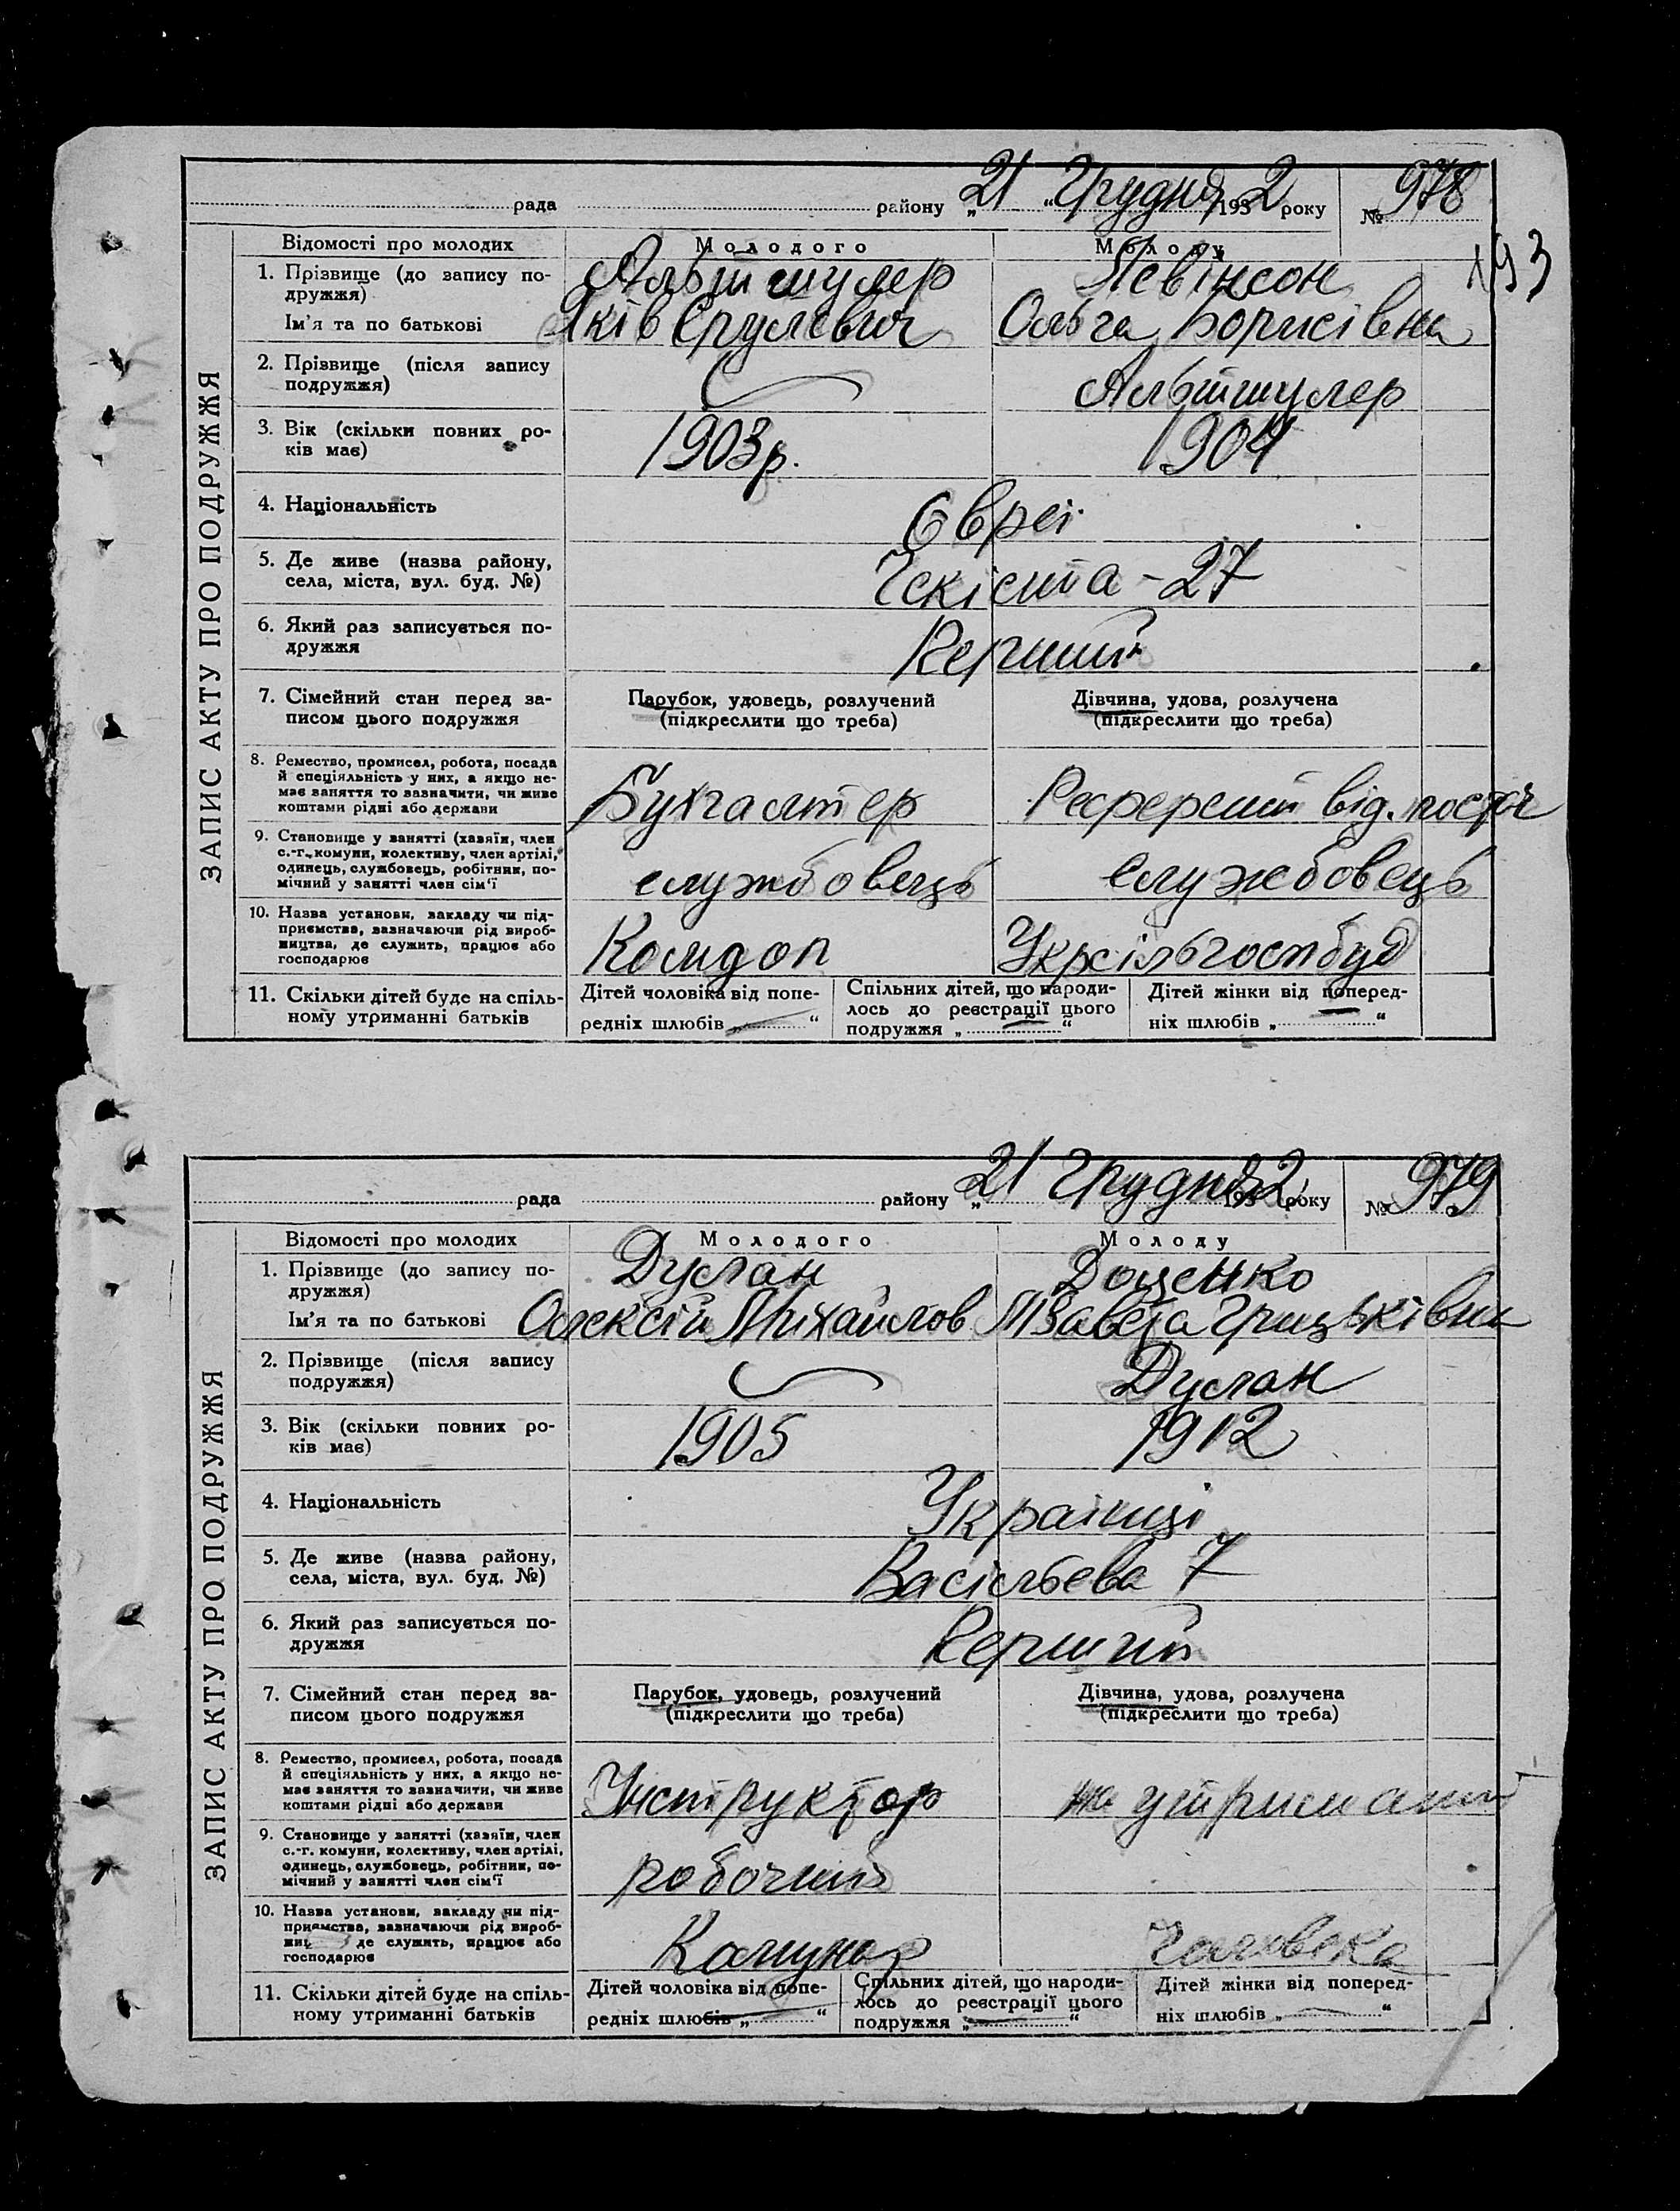 рада району „21“ Грудня 1932 року № 978
193
ЗАПИС АКТУ ПРО ПОДРУЖЖЯ
Відомості про молодих Молодого Молоду
1. Прізвище (до запису по- Альтшулер Левінсон
дружжя)
Ім'я та по батькові Яків Срулевич Ольга Борисівна
2. Прізвище (після запису
подружжя) Альтшулер
3. Вік (скільки повних ро-
ків має) 1903р. 1904
4. Національність Євреї
5. Де живе (назва району,
села, міста, вул. буд. №) Чекіста - 27
6. Який раз записується по-
дружжя Перший
7. Сімейний стан перед за- Парубок, удовець, розлучений Дівчина, удова, розлучена
писом цього подружжя (підкреслити що треба) (підкреслити що треба)
8. Ремество, промисел, робота, посада
й спеціяльність у них, а якщо не-
має заняття то зазначити, чи живе Бухгалтер Референт від. постач
коштами рідні або держави
9. Становище у занятті (хазяїн, член
с.-г. комуни, колективу, член артілі,
одинець, службовець, робітник, по- службовець службовець
мічний у занятті член сім'ї
10. Назва установи, закладу чи під-
приємства, зазначаючи рід вироб-
ництва, де служить, працює або Комдоп Укрсільгоспбуд
господарює
11. Скільки дітей буде на спіль- Дітей чоловіка від попе- Спільних дітей, що народи- Дітей жінки від поперед-
ному утриманні батьків редніх шлюбів „ “ лось до реєстрації цього ніх шлюбів „ “
подружжя „ “
рада району „21 Грудня 1932 року № 979
ЗАПИС АКТУ ПРО ПОДРУЖЖЯ
Відомості про молодих Молодого Молоду
1. Прізвище (до запису по- Дуслан Доценко
дружжя)
Ім'я та по батькові Олексій Міхайлов Грицьківна
2. Прізвище (після запису
подружжя) Дуслан
3. Вік (скільки повних ро-
ків має) 1905 1912
4. Національність Українці
5. Де живе (назва району,
села, міста, вул. буд. №) Васільева 7
6. Який раз записується по-
дружжя Перший
7. Сімейний стан перед за- Парубок, удовець, розлучений Дівчина, удова, розлучена
писом цього подружжя (підкреслити що треба) (підкреслити що треба)
8. Ремество, промисел, робота, посада
й спеціяльність у них, а якщо не-
має заняття то зазначити, чи живе Інструктор на утриман
коштами рідні або держави
9. Становище у занятті (хазяїн, член
с.-г. комуни, колективу, член артілі,
одинець, службовець, робітник, по- робочий
мічний у занятті член сім'ї
10. Назва установи, закладу чи під-
приємства, зазначаючи рід вироб-
де служить, працює або чоловіка
господарює
11. Скільки дітей буде на спіль- Дітей чоловіка від попе- Спільних дітей, що народи- Дітей жінки від поперед-
ному утриманні батьків редніх шлюбів „ “ лось до реєстрації цього ніх шлюбів „ “
подружжя „ “